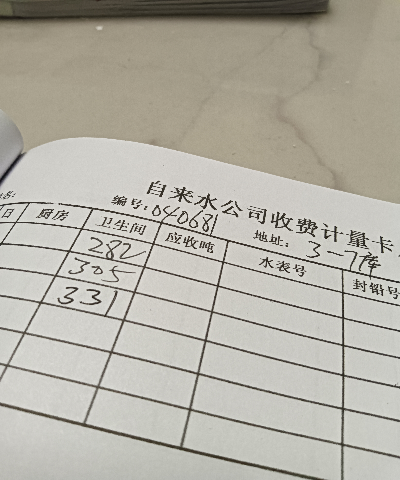 自来水公司收费计量卡
编号:040681 地址: 3-7库
日 厨房 卫生间 应收吨 水表号 封铅号
282
305
331